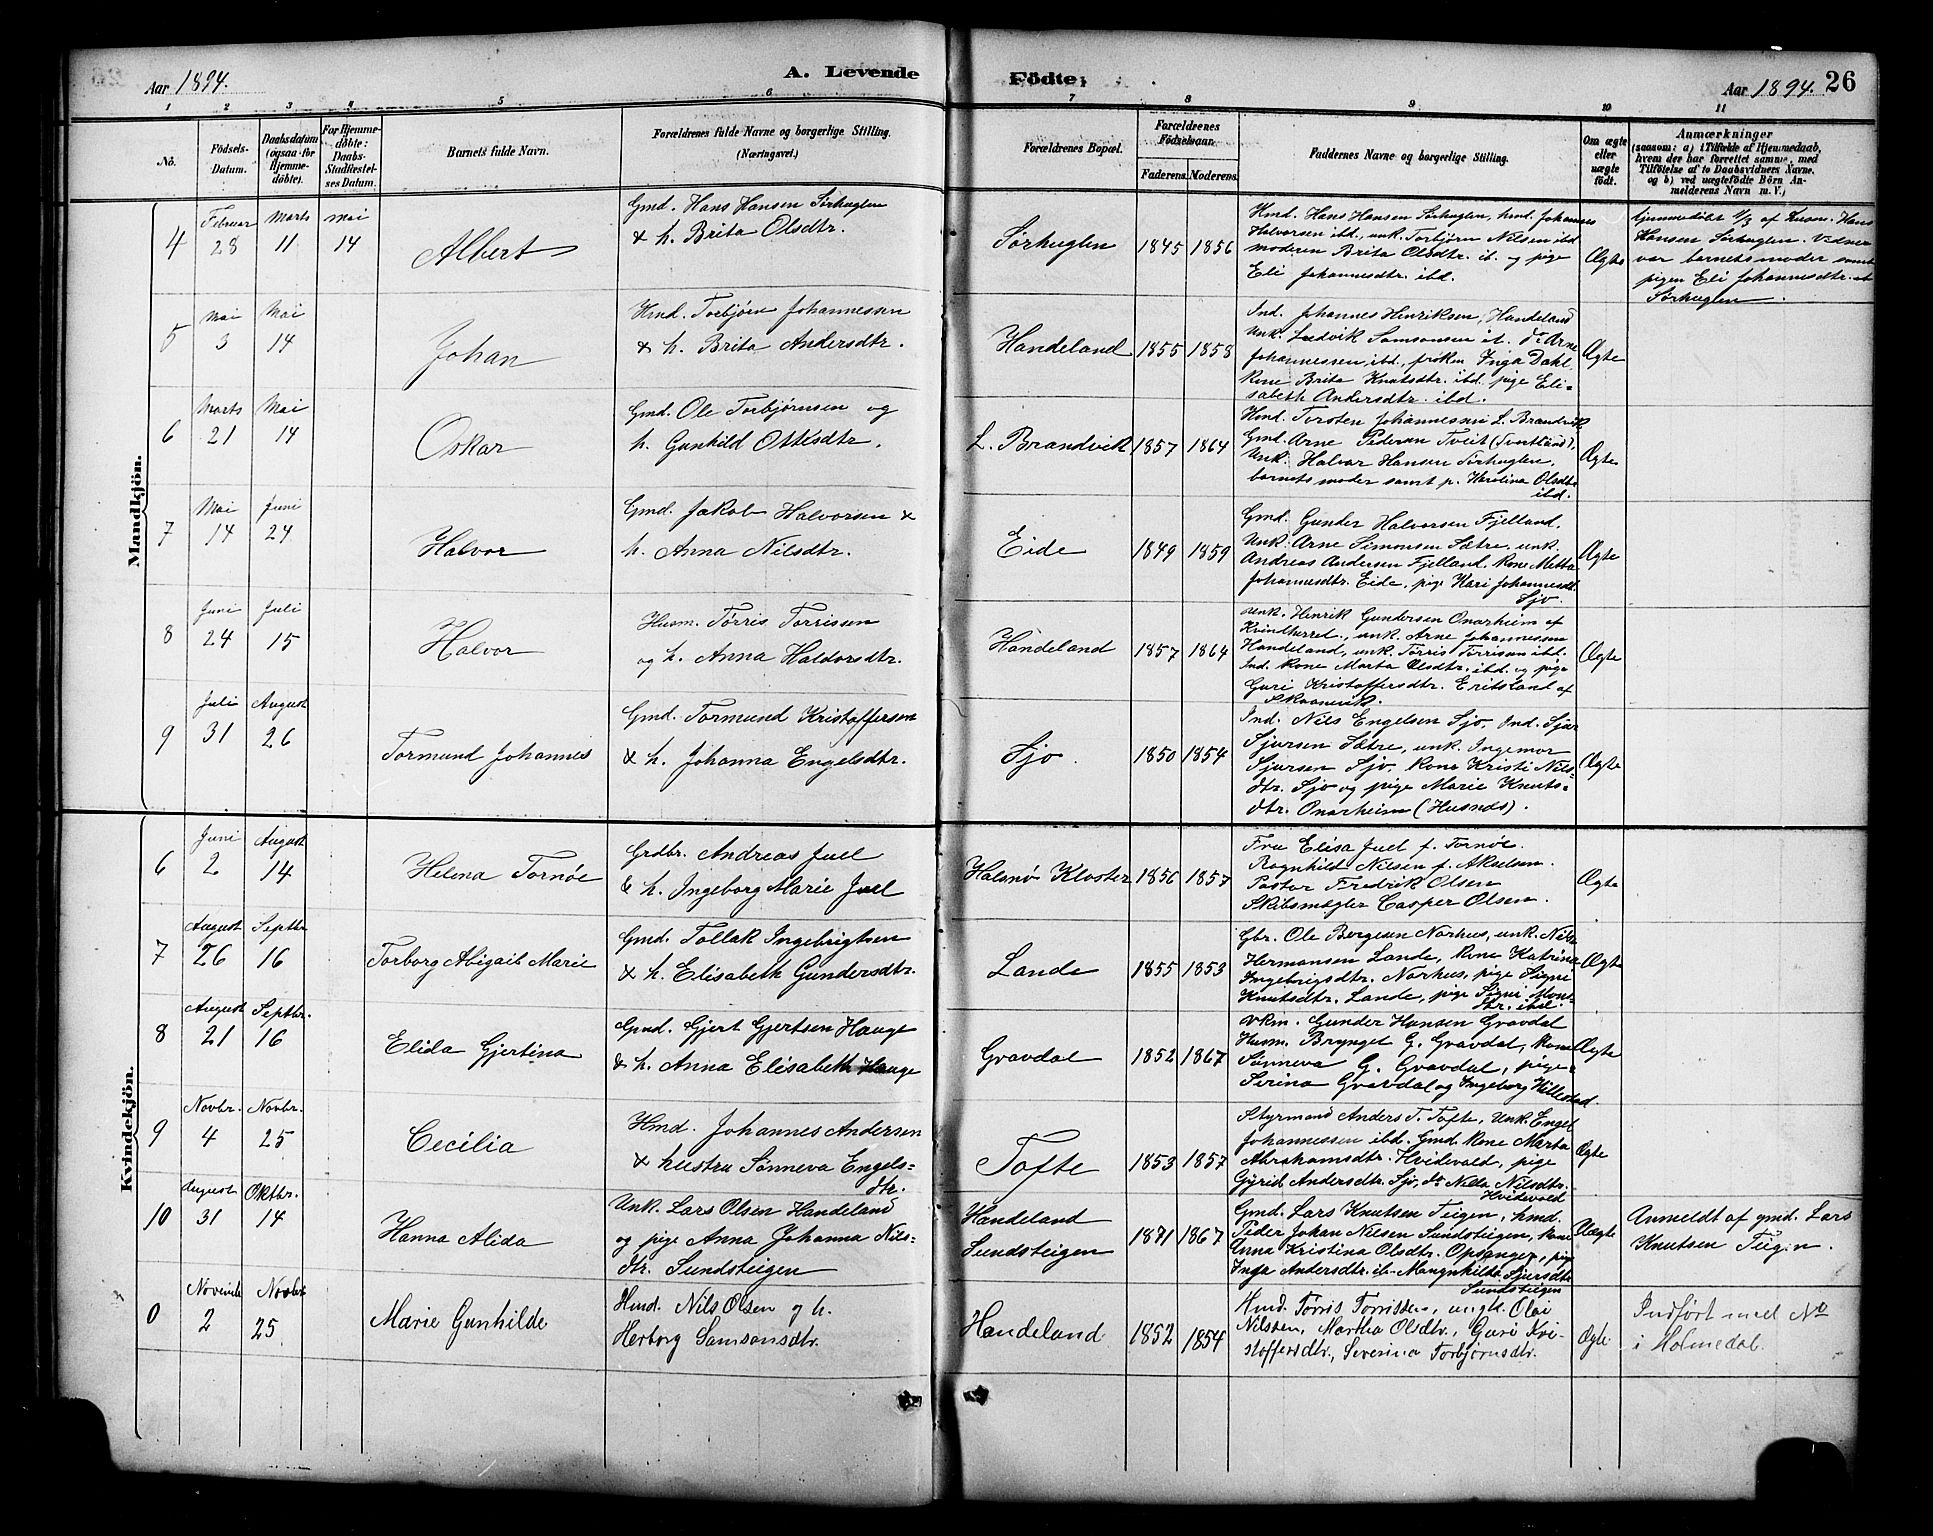 Aar 1894.
A. Levende
Födte;
Aar 1894. 26
1 2 3 4 5 6 7 8 9 10 11
No.
Födsels-
Datum.
Daabsdatum
(ogsaa for
Hjemme-
döbte).
For Hjemme-
döbte:
Daabs-
Stadfæstel-
ses Datum.
Barnets fulde Navn.
Forældrenes fulde Navne og borgerlige Stilling.
(Næringsvei.)
Forældrenes Bopæl.
Forældrenes
Födselsaar.
Faderens. Moderens.
Faddernes Navne og borgerlige Stilling.
Om ægte
eller
uægte
født.
Anmærkninger
(saasom: a) i Tilfælde af Hjemmedaab,
hvem der har forrettet samme, med
Tilföielse af to Daabsvidners Navne,
og b) ved uægtefödte Börn An-
melderens Navn m. V.)
Mandkjön.
4
Februar
28
Marts
11
Mai
14
Albert
Gmd. Hans Hansen Sørhuglen
& h. Brita Olsdtr.
Sørhuglen
1845 1856
Hmd. Hans Hansen Sørhuglen, hmd. Johannes
Halvorsen ibd., unk. Torbjørn Nilsen ibd
moderen Brita Olsdtr. ib. og pige
Eli Johannesdtr. ibd.
Ægte
hjemmedøbt af Hans
Hansen Sørhuglen. Vidner
var barnets moder samt
pigen Eli Johannesdtr.
Sørhuglen.
5
Mai
3
Mai
14
Johan
Hmd. Torbjørn Johannessen
& h. Brita Andersdtr.
Handeland
1855 1858
Ind. Johannes Henriksen, Handeland
Unk. Ludvik Samsonsen ib. do Arne
Johannessen ibd., frøken Inga Dahl,
Kone Brita Knutsdtr. ibd. pige Eli-
sabeth Andersdtr. ibd.
Ægte
6
Marts
21
Mai
14
Oskar
Gmd. Ole Torbjørnsen og
h. Gunhild Ottesdtr.
L. Brandvik
1857 1864
Hmd. Torsten Johannessen L. Brandvik
Gmd. Arne Pedersen Tveit (Tvertland),
Unk. Halvor Hansen Sørhuglen,
barnets moder samt p. Karolina Olsdtr
ibd.
Ægte
7
Mai
14
Juni
24
Halvor
Gmd. Jakob Halvorsen &
h. Anna Nilsdtr.
Eide
1849 1859
Gmd. Gunder Halvorsen Fjelland,
Unk. Arne Simonsen Sætre, unk.
Andreas Andersen Fjelland. Kone Metta
Johannesdtr. Eide, pige Kari Johannesdt.
Sjo.
Ægte
8
Juni
24
Juli
15
Halvor
Husm. Tørris Torrissen
og h. Anna Haldorsdtr.
Handeland
1857 1864
Unk. Henrik Gundersen Onarheim af
Kvindherred, unk. Arne Johannessen
Handeland, unk. Tørris Torrissen ibd.
Ind. Kone Marta Olsdtr. ibd. og pige
Guri Kristoffersdtr. Eritsland af
Skaanevik.
Ægte
9
Juli
31
August
26
Tormund Johannes
Gmd. Tormund Kristoffersen
& h. Johanna Engelsdtr.
Sjo.
1850 1854
Ind. Nils Engelsen Sjo, Ind. Sjur
Sjursen Sætre, unk. Ingemor
Sjursen Sjo, Kone Kristi Nils-
dtr. Sjo og pige Marie Knuts-
dtr. Onarheim (Husnæs).
Ægte
Kvindekjön.
6
Juni
2
August
14
Helena Tornøe
Grdbr. Andreas Juel
& h. Ingeborg Marie Juel
Halsnø Kloster
1856 1857
Fru Elisa Juel f. Tornöe.
Ragnhild Nilsen f. Akselsen.
Pastor Fredrik Olsen
Skibsmægler Casper Olsen.
Ægte
7
August
26
Septbr
16
Torborg Abigail Marie
Gmd. Tollak Ingebrigtsen
& h. Elisabeth Gundersdtr.
Lande
1855 1853
Gbr. Ole Bergesen Norhus, unk. Nils
Hermansen Lande, Kone Katrina
Ingebrigsdtr. Norhus, pige Signe
Knutsdtr. Lande, pige Signi Mons-
dtr. ibd.
Ægte
8
August
21
Septbr.
16
Elida Gjertina
Gmd. Gjert Gjertsen Hauge
& h. Anna Elisabeth Hauge
Gravdal
1852 1867
Unk. Gunder Hansen Gravdal
Husm. Brynget G. Gravdal, Kone
Sønneva G. Gravdal, pige
Serina Gravdal og Ingeborg Hillestad.
Ægte
9
Novbr.
4
Novbr.
25
Cecilia
Hmd. Johannes Andersen
& hustru Sønneva Engels-
dtr.
Tofte
1853 1857
Styrmand Anders T. Tofte, Unk. Engel
Johannessen ibd. Gmd. Kone Marta
Abrahamsdtr. Hvidevold, pige
Gyrid Andersdtr. Sjo, do Nilla Nilsdtr.
Hvidevold
Ægte
10
August
31
Oktbr.
14
Hanna Alida
Unk. Lars Olsen Handeland
og pige Anna Johanna Nils-
dtr. Sundsteigen
Handeland
Sundsteigen
1871 1867
Gmd. Lars Knutsen Teigen, hmd.
Peder Johan Nilsen Sundsteigen, Kone
Anna Kristina Olsdtr. Opsanger, pige
Inga Andersdtr. ib. Mangnhilda Sjursdtr
Sundsteigen
Uægte
Anmeldt af gmd. Lars
Knutsen Teigen.
0
Novembr
2
Novbr
25
Marie Gunhilde
Hmd. Nils Olsen og h.
Herborg Samsonsdtr.
Handeland.
1852 1854
Hmd. Tørris Torrissen, ungk. Olai
Nilssen, Martha Olsdtr., Guri Kri-
stoffersdtr., Severina Torbjørnsdtr.
Ægte
Indført med No
i Holmedal.